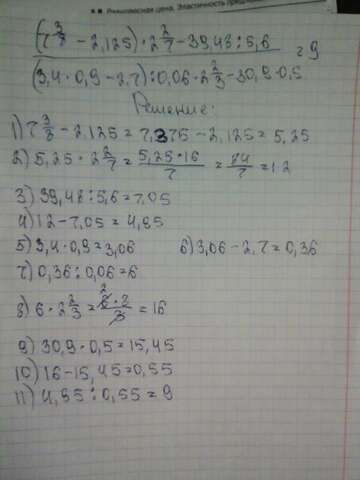 Инклюзивная цена. Эластичность
(7 3/8 - 2,125) · 2 2/7 - 39,48 : 5,6
= 9
(3,4 · 0,9 - 2,7) : 0,06 · 2 2/3 - 30,9 · 0,5
Решение:
1) 7 3/8 - 2,125 = 7,375 - 2,125 = 5,25
2) 5,25 · 2 2/7 = 5,25 · 16/7 = 84/7 = 12
3) 39,48 : 5,6 = 7,05
4) 12 - 7,05 = 4,95
5) 3,4 · 0,9 = 3,06 6) 3,06 - 2,7 = 0,36
7) 0,36 : 0,06 = 6
8) 6 · 2 2/3 = 6 · 8/3 = 16
9) 30,9 · 0,5 = 15,45
10) 16 - 15,45 = 0,55
11) 4,95 : 0,55 = 9